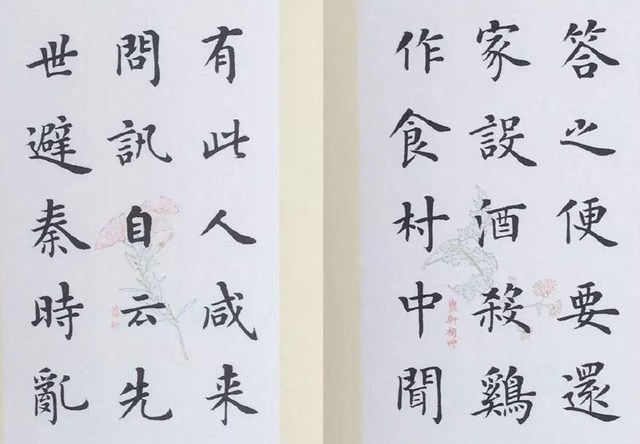 答之便要還
家設酒殺鷄
作食村中聞
有此人咸来
問訊自云先
世避秦時亂